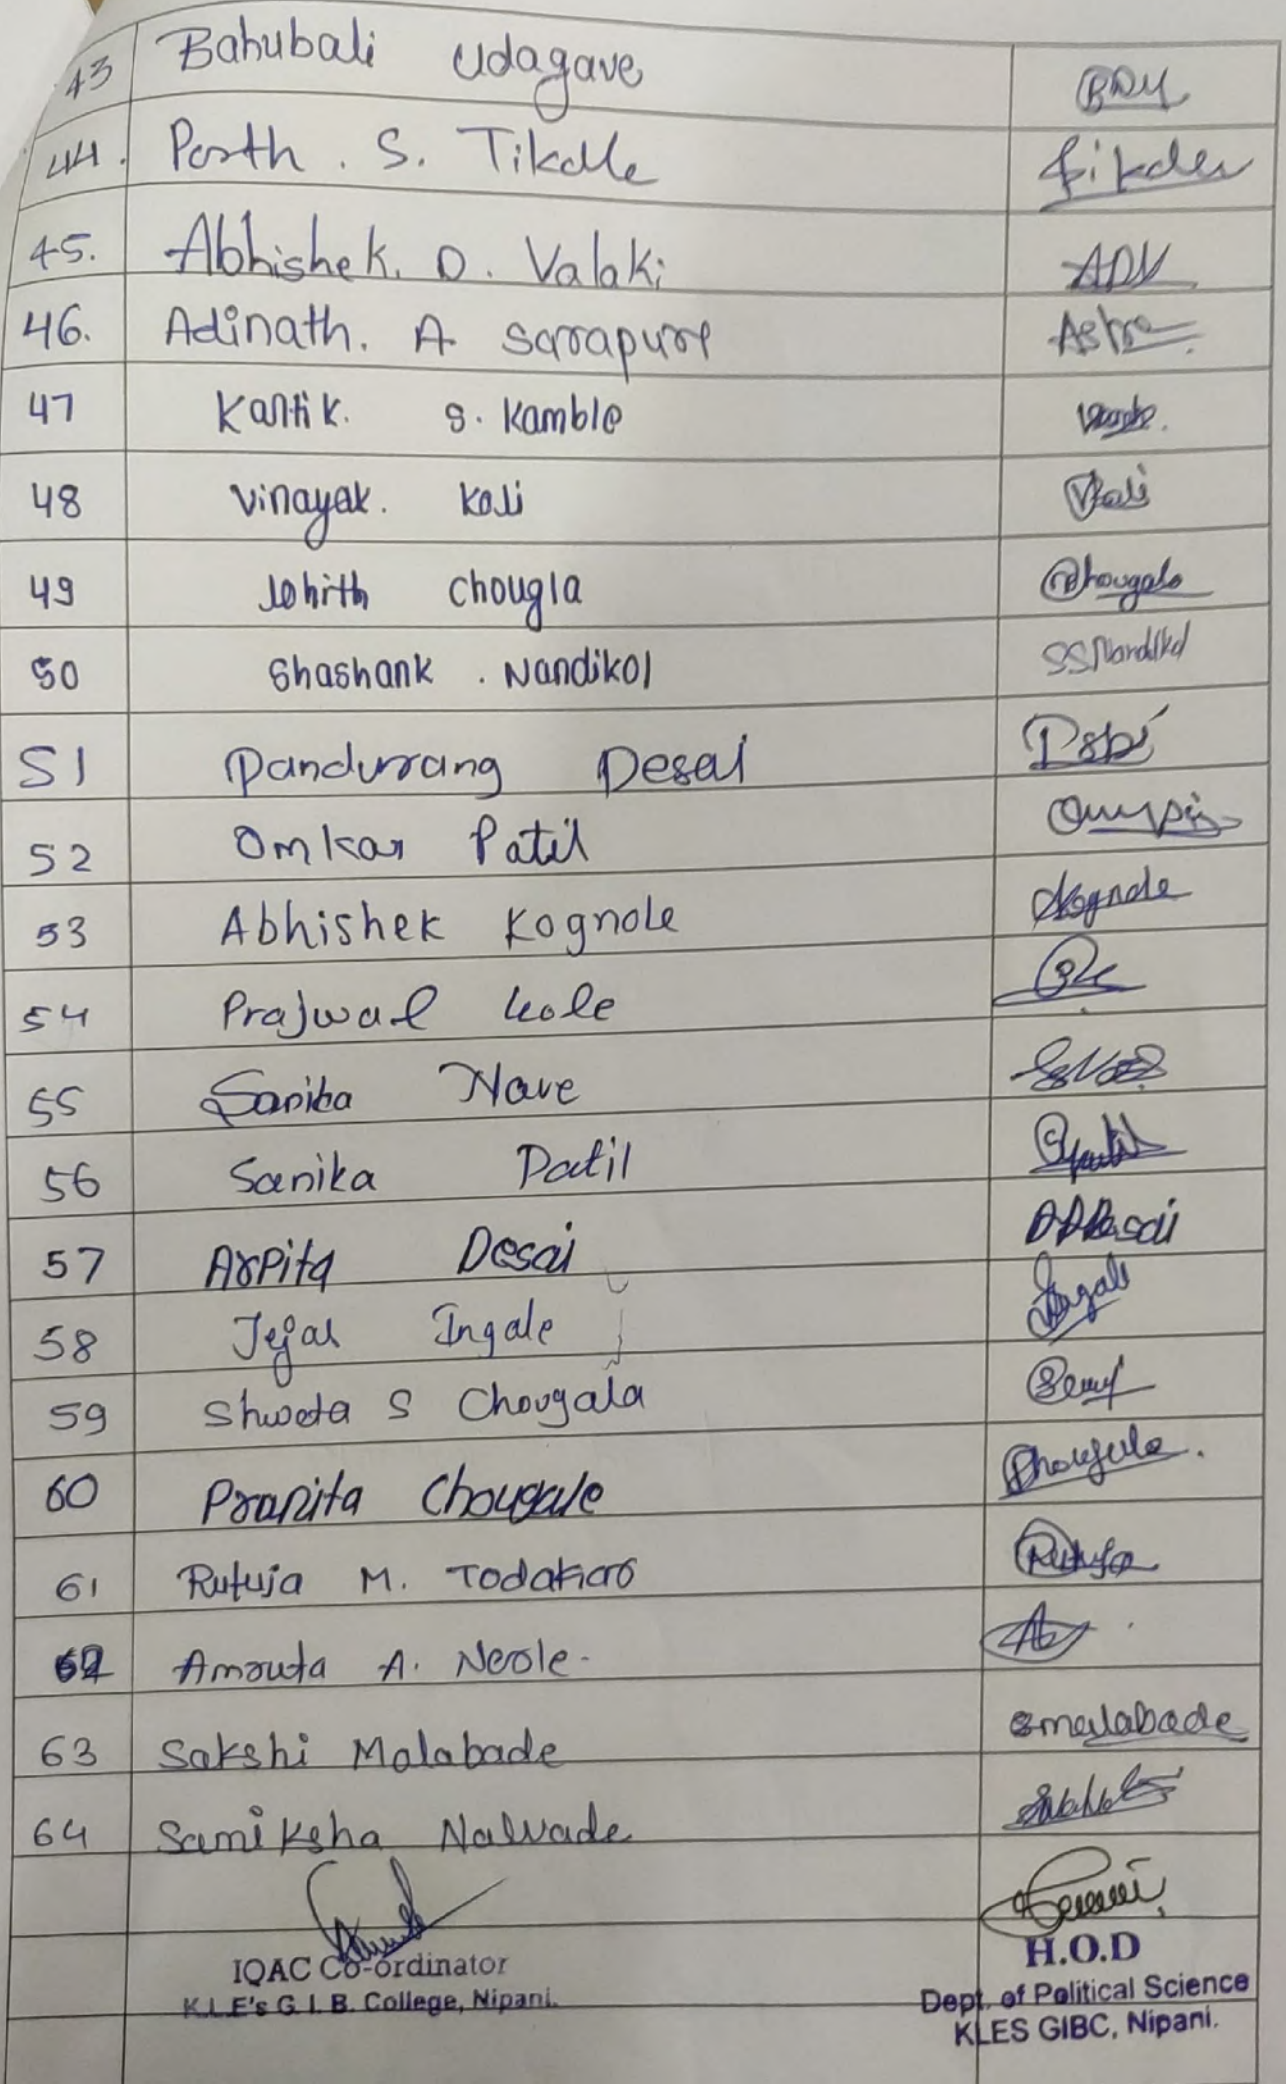 43 Bahubali Udagave BDU
44. Parth. S. Tikdle Tikdle
45. Abhishek. D. Valaki ADV
46. Adinath. A Sarapure
47 Kartik. S. Kamble
48 Vinayak. Koli VKoli
49 Lohith Chougla Chougale
50 Shashank. Nandikol SSNandikol
51 Pandurang Desai
52 Omkar Patil
53 Abhishek Kognole AKognole
54 Prajwal Kole
55 Sanika Nave
56 Sanika Patil
57 Arpita Desai Desai
58 Tejas Ingale
59 Shweta S Chougala
60 Pranita Chougale
61 Rutuja M. Todakar Rutuja
62 Amruta A. Nerle.
63 Sakshi Malabade smalabade
64 Samiksha Nalvade
IQAC Co-ordinator
K.L.E's G.I.B. College, Nipani.
H.O.D
Dept. of Political Science
KLES GIBC, Nipani.